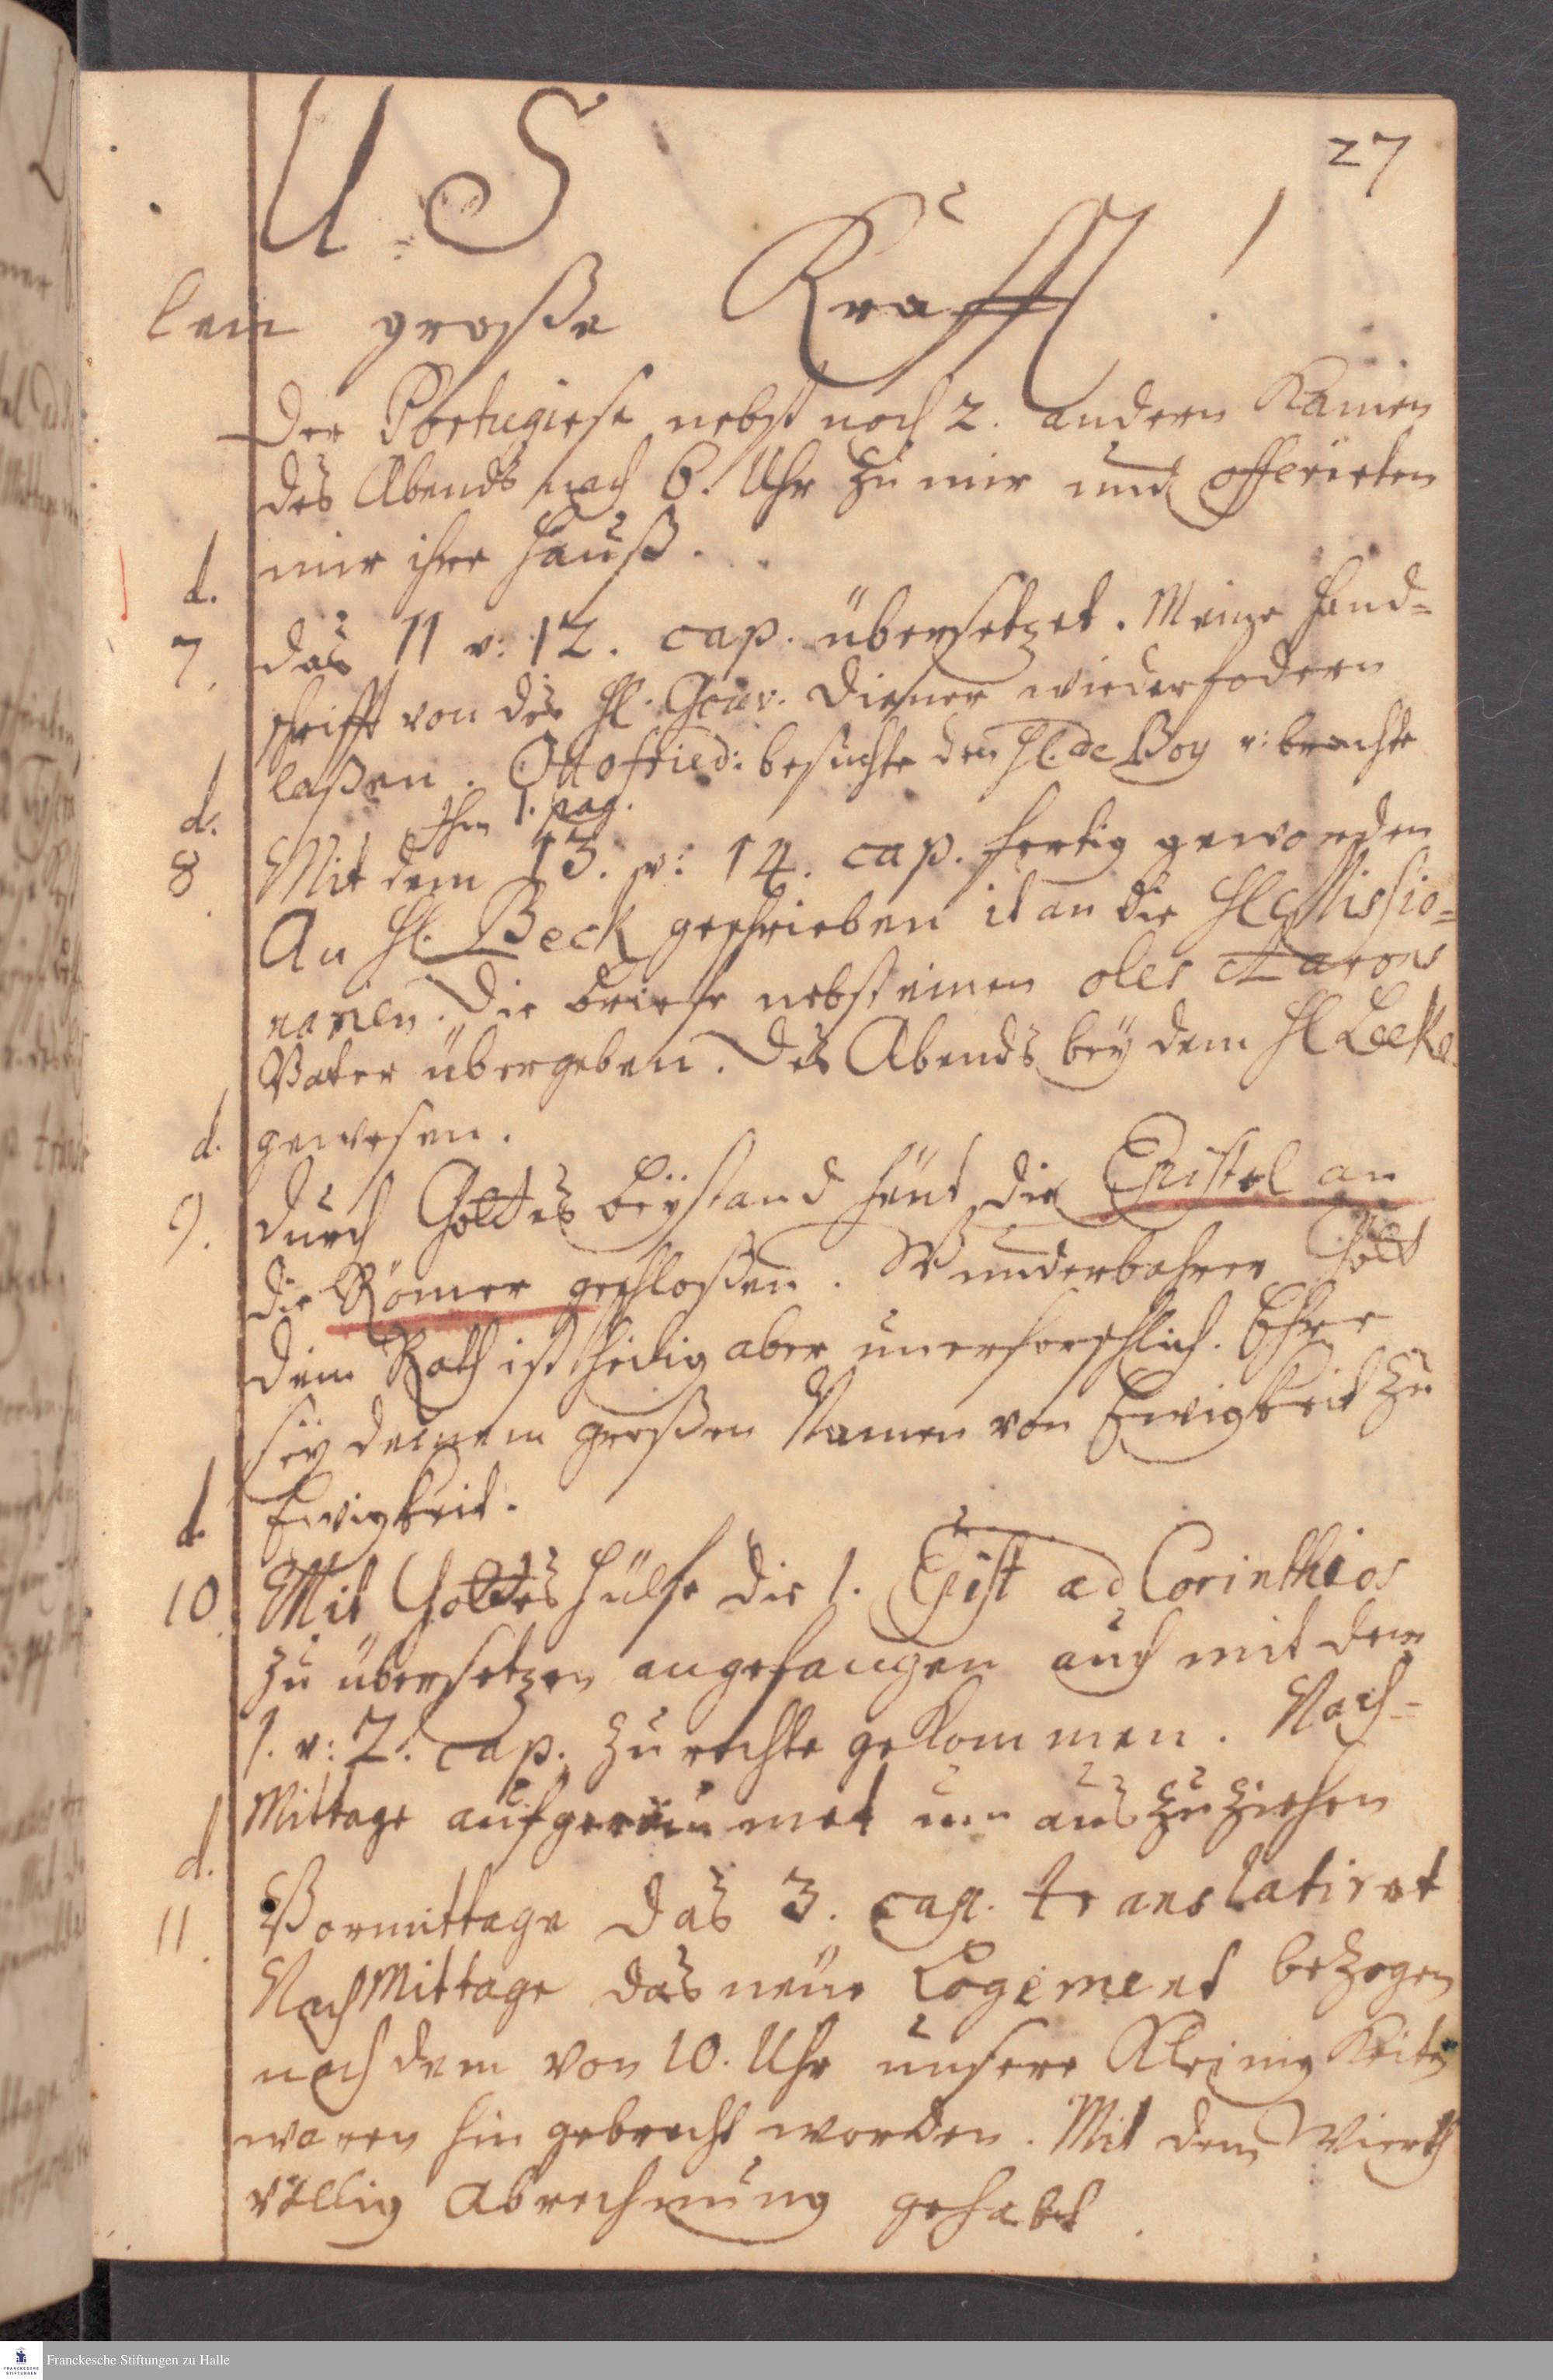 27
U S
lein große Krafft !
Der Portugiese nebst noch 2. andern kamen
des Abends nach 6. Uhr zu mir und offerirten
mir ihre Hauß.
d. 7. das 11 v: 12. cap. übersetzet. Meine Hand=
schrifft von des H. Gouv. Diener wiederfodern
laßen. Ottofried: besuchte den H. de Boy v: brachte
Ihm 1. pag.
d. 8. Mit dem 13. v: 14. cap. fertig geworden
An H. Beck geschrieben it an die H Missio=
narien. Die Briefe nebst einen oles Aarons
Vater übergeben. Des Abends bey dem H
gewesen.
d. 9. durch Gottes Beystand heut die Epistel an
die Römer geschloßen. Wunderbahrer Gott
dein Rath ist heilig aber unerforschlich. Ehre
sey deinem großen Namen von Ewigkeit zu
Ewigkeit.
d. 10. Mit Gottes Hülfe die 1. Epist ad Corinthios
zu übersetzen angefangen auch mit dem
1. v: 2. cap. zurechte gekommen. Nach=
Mittage aufgeräumet um auszuziehen
d. 11. Vormittage das 3. cap. translatiret
NachMittage das neue Logement bezogen
nach dem von 10. Uhr unsere Kleinigkeiten
waren hin gebracht worden. Mit dem Wierth
völlig Abrechnung gehabt.
Franckesche Stiftungen zu Halle
FRANCKESCHE STIFTUNGEN